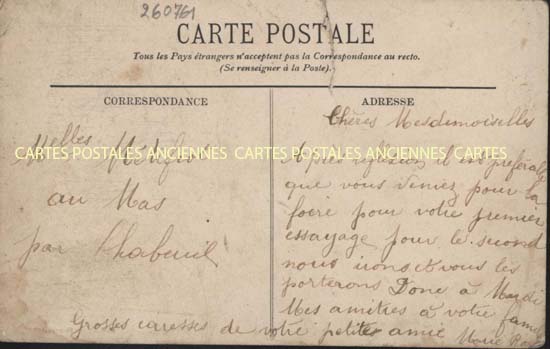 260761
CARTE POSTALE
Tous les Pays étrangers n'acceptent pas la Correspondance au recto.
(Se renseigner à la Poste).
CORRESPONDANCE
ADRESSE
Melles
au Mas
par Chabeuil
Chères Mesdemoiselles
Après réflexion il est préférable
que vous veniez pour la
foire pour votre premier
essayage pour le second
nous irons et vous les
porterons Donc à Mardi
Mes amitiés à votre famille
Grosses caresses de votre petite amie Marie
CARTES POSTALES ANCIENNES CARTES POSTALES ANCIENNES CARTES